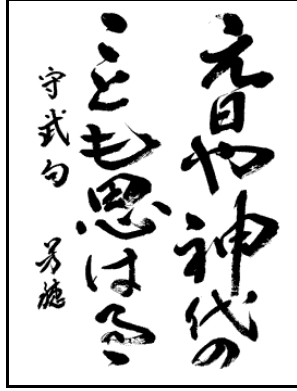 元日や神代の
ことも思はるゝ
守武句